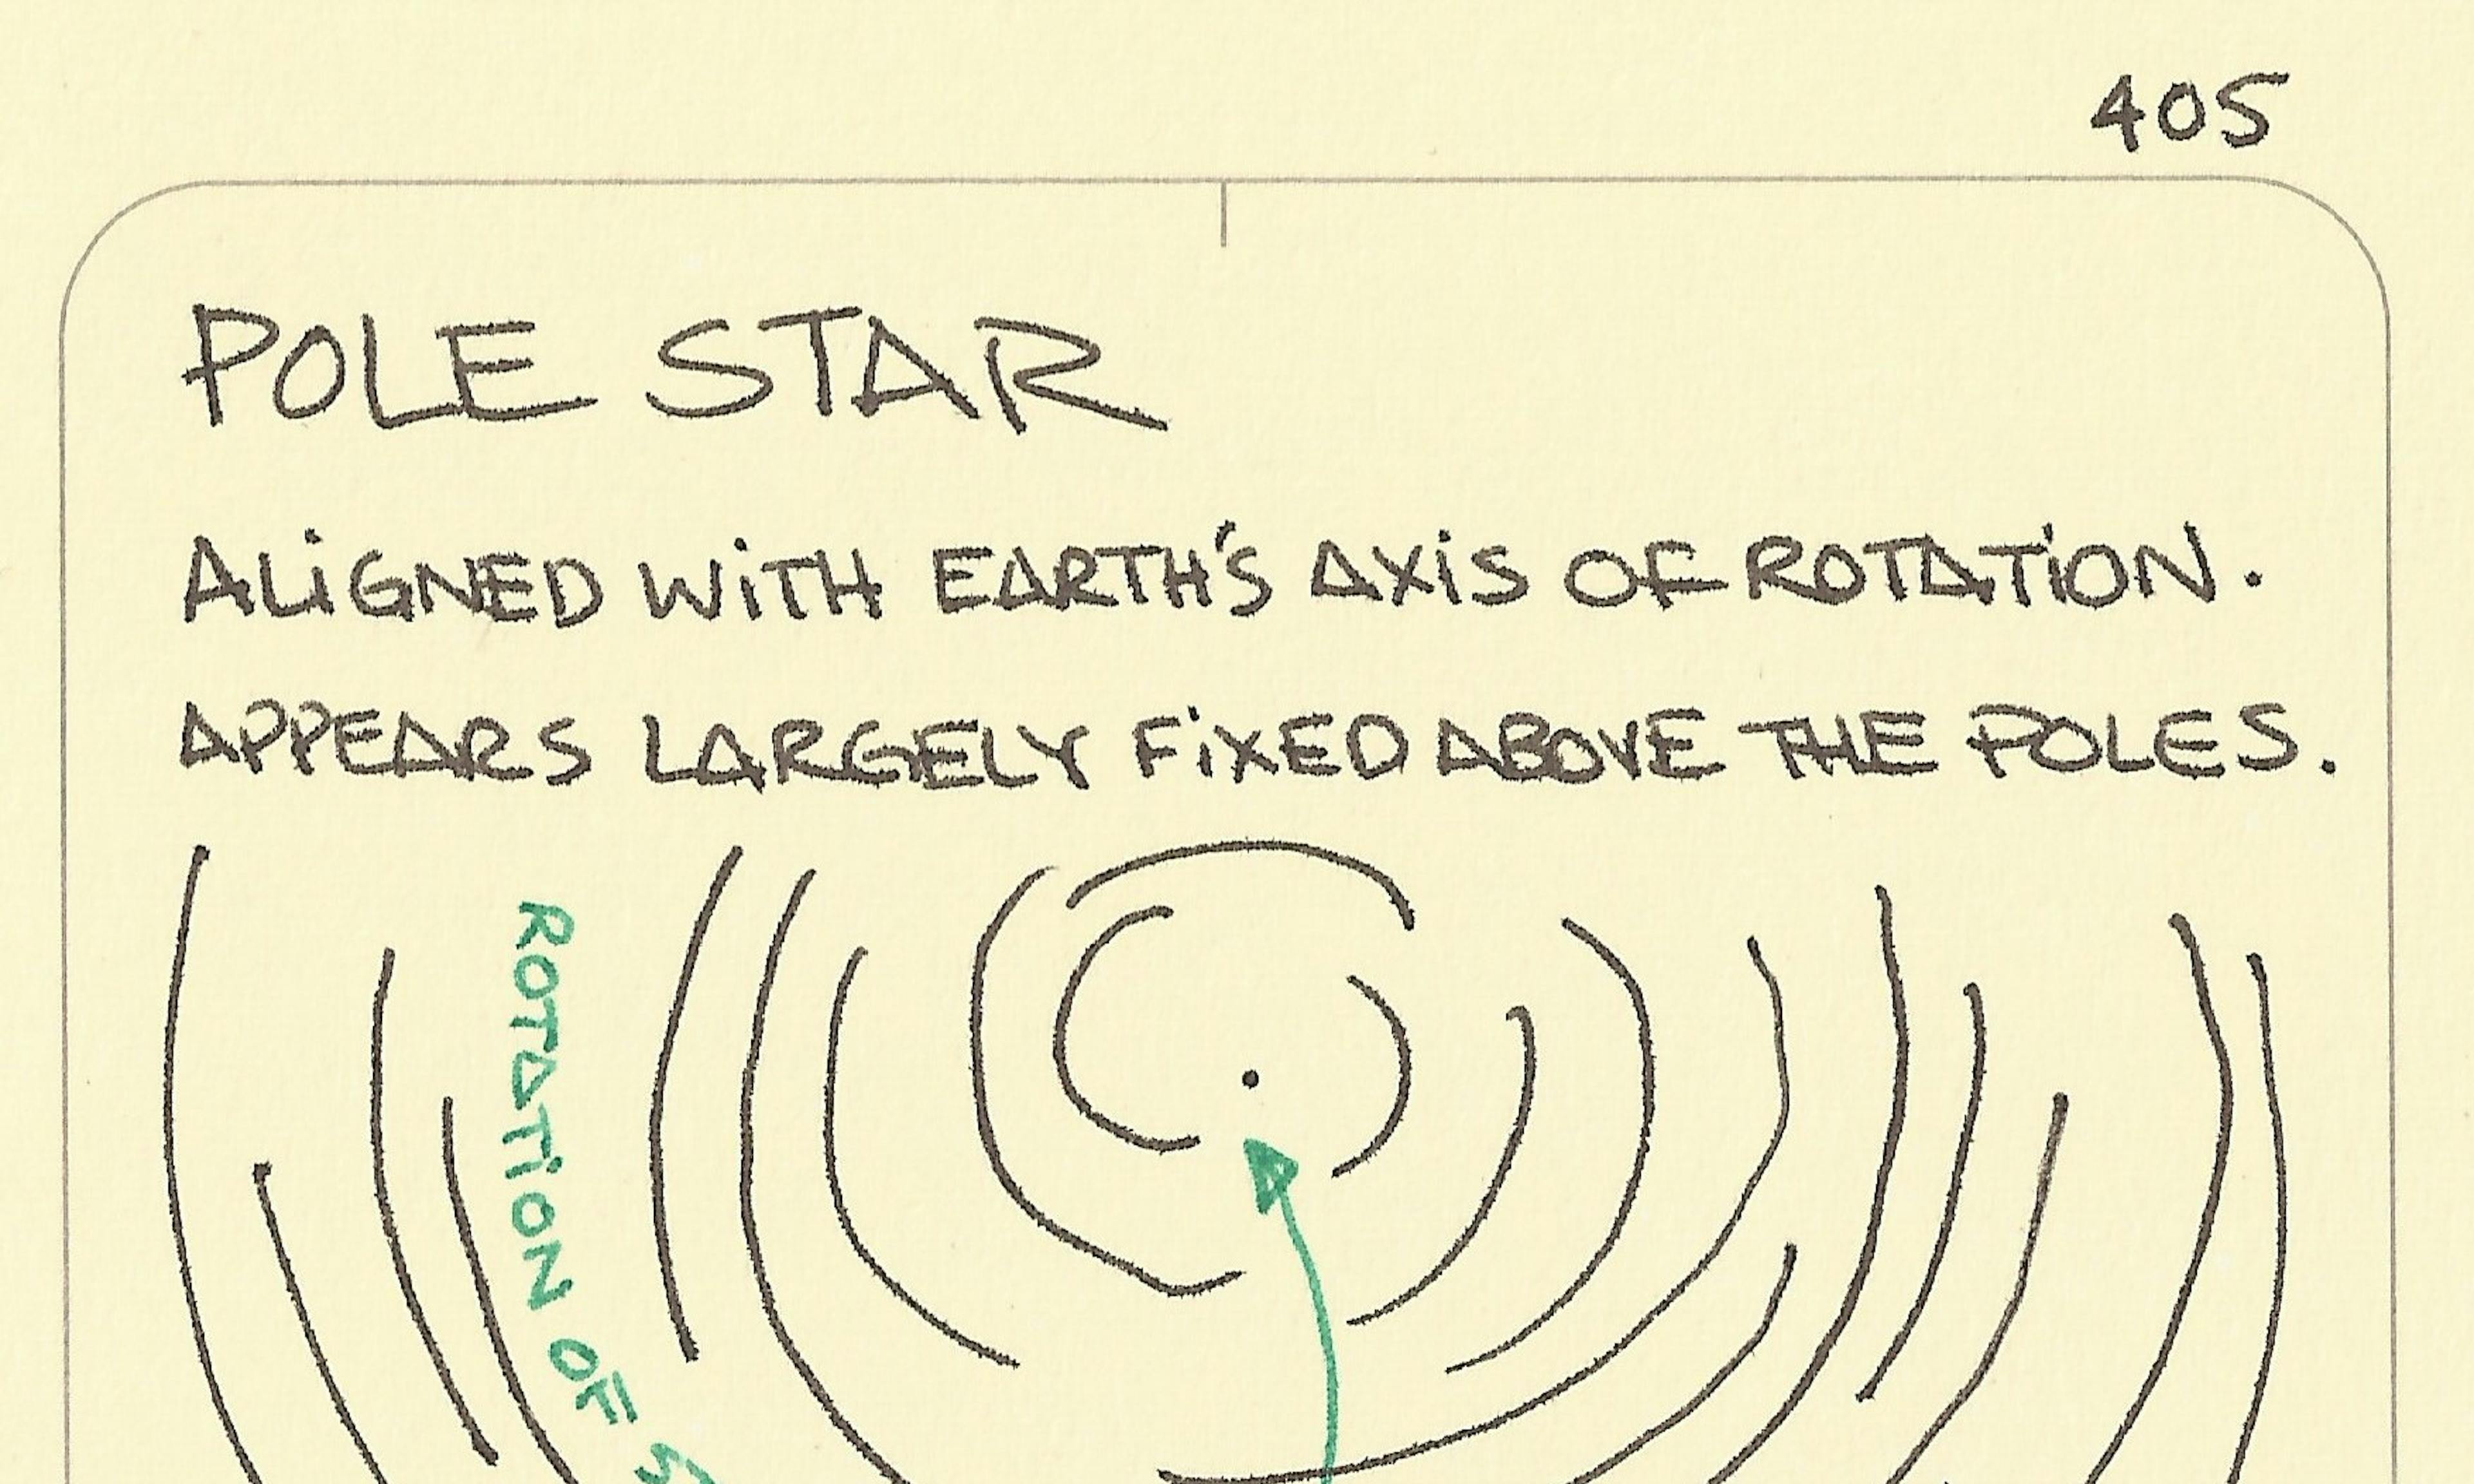 405
POLE STAR
ALiGNED WiTH EARTH'S AXiS OF ROTATiON.
APPEARS LARGELY FiXED ABOVE THE POLES.
ROTATiON OF